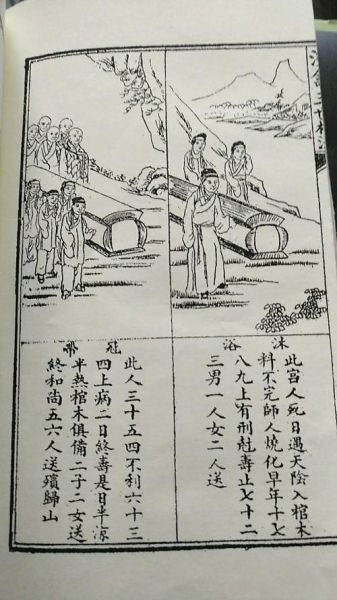 沐浴
此宫人死日遇天陰入棺木
料不完師人燒化早年十七
八九上有刑尅壽止七十二
三男一人女二人送
冠帶
此人三十五四不利六十三
四上病二日終壽是日半凉
半熱棺木俱備二子二女送
終和尚五六人送殯歸山